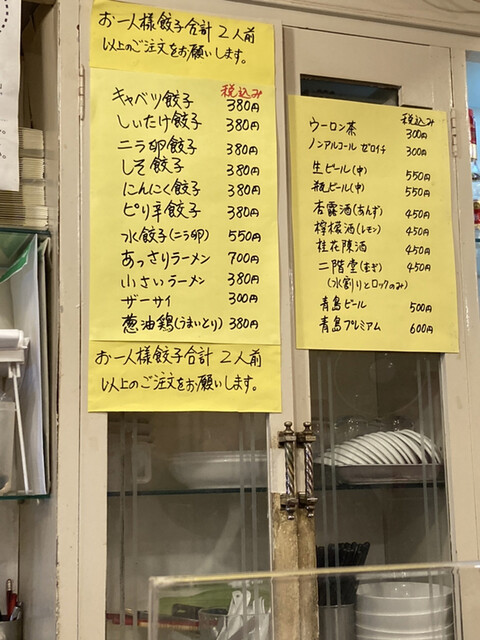 お一人様餃子合計 2人前
以上のご注文をお願いします。
税込み
キャベツ餃子 380円
しいたけ餃子 380円
ニラ卵餃子 380円
しそ餃子 380円
にんにく餃子 380円
ピリ辛餃子 380円
水餃子(ニラ卵) 550円
あっさりラーメン 700円
小さいラーメン 380円
ザーサイ 300円
葱油鶏(うまいとり) 380円
お一人様餃子合計 2人前
以上のご注文をお願いします。
税込み
ウーロン茶 300円
ノンアルコール ゼロイチ 300円
生ビール(中) 550円
瓶ビール(中) 550円
杏露酒(あんず) 450円
檸檬酒(レモン) 450円
桂花陳酒 450円
二階堂(むぎ) 450円
(水割りとロックのみ)
青島ビール 500円
青島プレミアム 600円